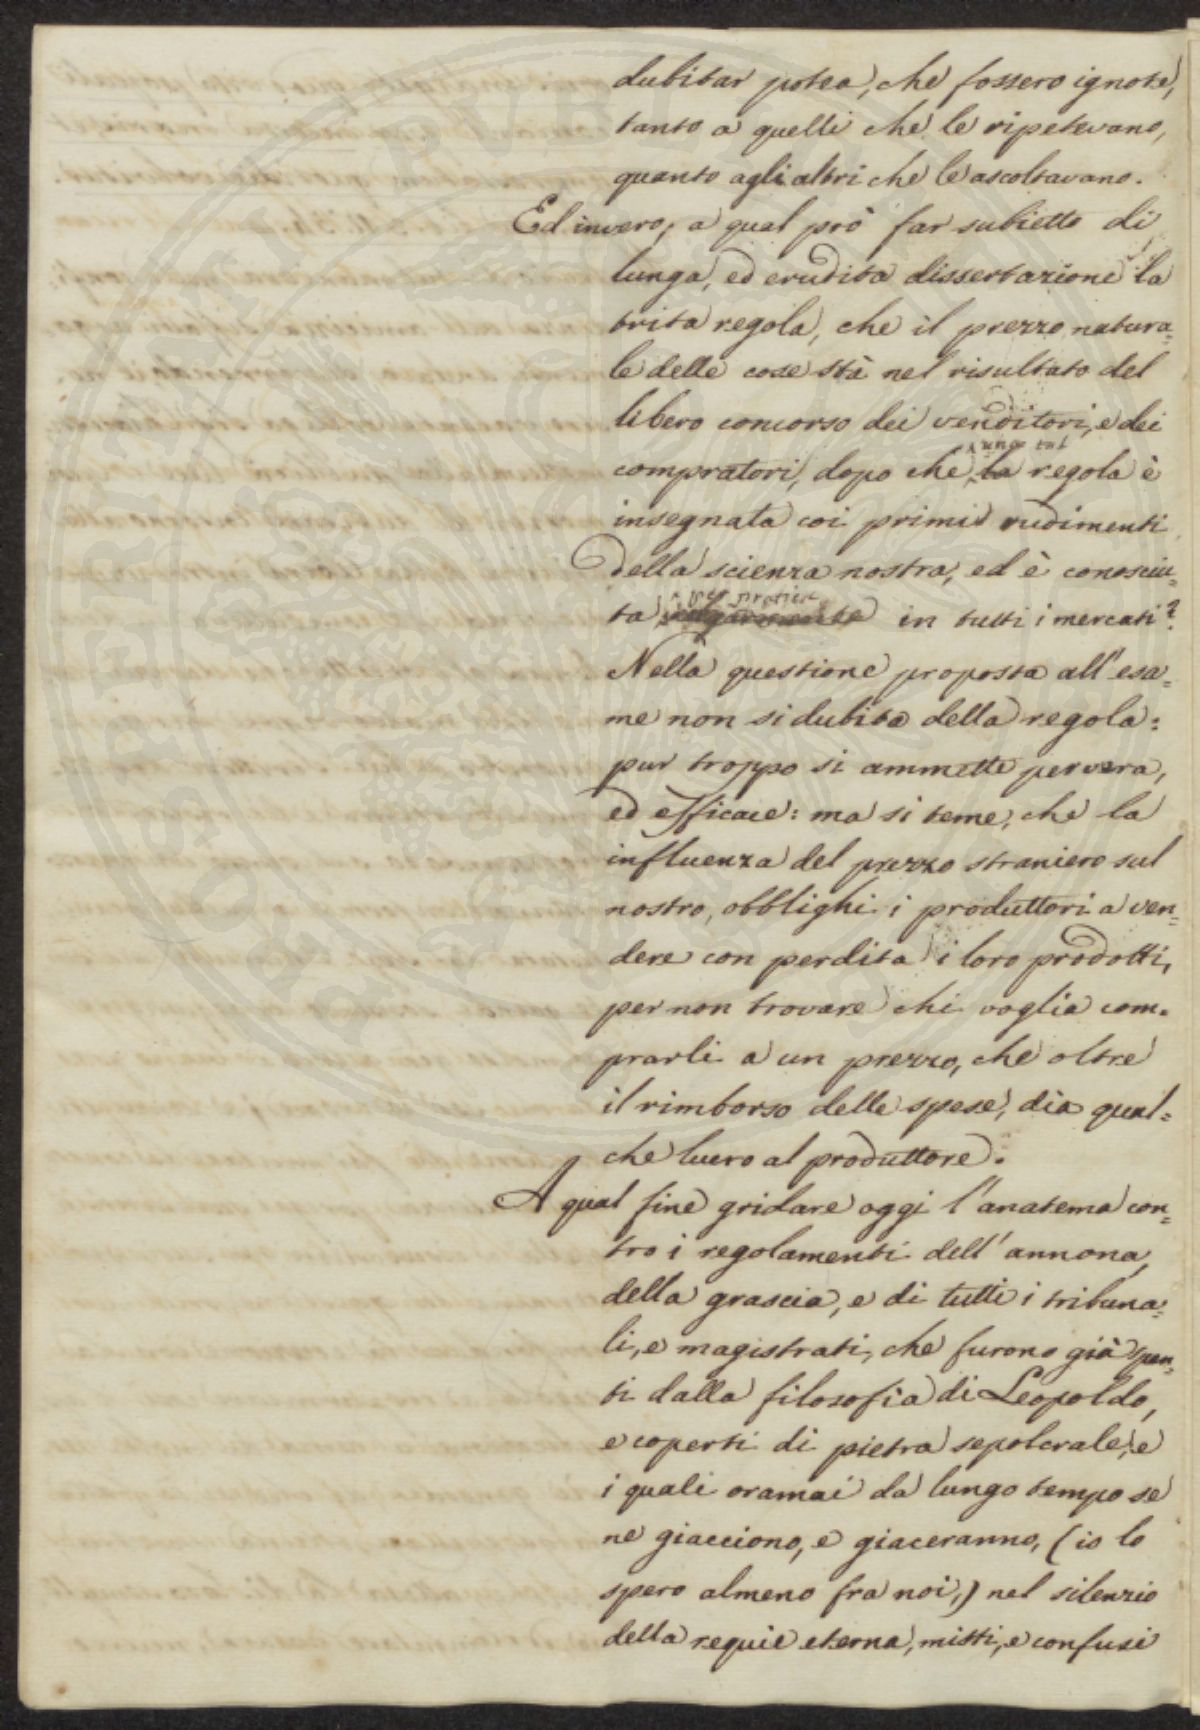 dubitar potea, che fossero ignote,
tanto a quelli che le ripetevano,
quanto agli altri che le ascoltavano.
Ed invero, a qual prò far subietto di
lunga, ed erudita dissertazione la
trita regola, che il prezzo natura=
le delle cose stà nel risultato del
libero concorso dei venditori, e dei
una tal
compratori, dopo che la regola è
insegnata coi primi rudimenti
della scienza nostra, ed è conosciu=
per pratica
ta volgarmente in tutti i mercati?
Nella questione proposta all'esa=
me non si dubita della regola:
pur troppo si ammette per vera,
ed efficace: ma si teme, che la
influenza del prezzo straniero sul
nostro, obblighi i produttori a ven=
dere con perdita i loro prodotti,
per non trovare chi voglia com=
prarli a un prezzo, che oltre
il rimborso delle spese, dia qual=
che lucro al produttore.
A qual fine gridare oggi l'anatema con=
tro i regolamenti dell'annona,
della grascia, e di tutti i tribuna=
li, e magistrati, che furono già spen=
ti dalla filosofia di Leopoldo,
e coperti di pietra sepolcrale, e
i quali oramai da lungo tempo se
ne giacciono, e giaceranno, (io lo
spero almeno fra noi,) nel silenzio
della requie eterna, misti, e confusi
PROSPERITATI PUBLICAE